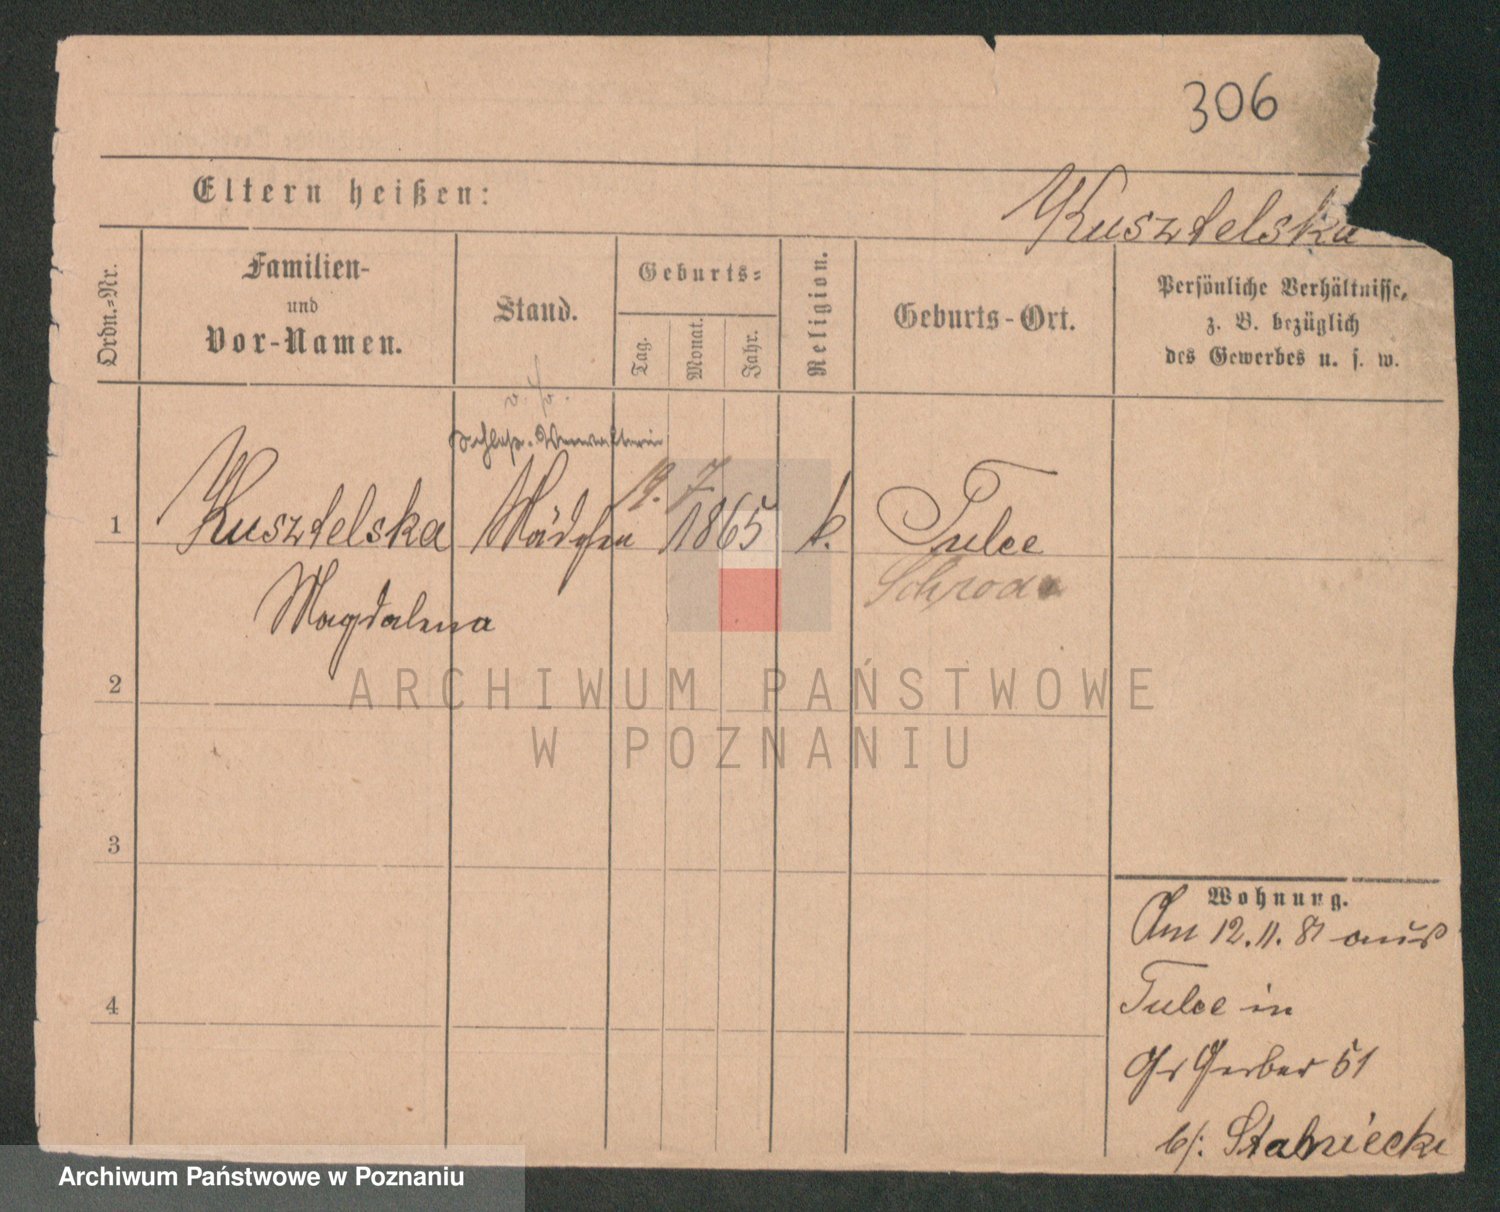 306
Eltern heißen:
Kusztelska
Ordn.-Nr.
Familien-
und
Vor-Namen.
Stand.
Geburts-
Tag.
Monat.
Jahr.
Religion.
Geburts-Ort.
Persönliche Verhältnisse,
z. B. bezüglich
des Gewerbes u. s. w.
Schloß-Verwalterin
1 Kusztelska Mädchen 19. 7. 1865 k. Tulce
Magdalena Schroda
2
3
4
Wohnung.
Am 12.11.81 aus
Tulce in
Gr Gerber 51
b/: Stabniecki
ARCHIWUM PAŃSTWOWE
W POZNANIU
Archiwum Państwowe w Poznaniu